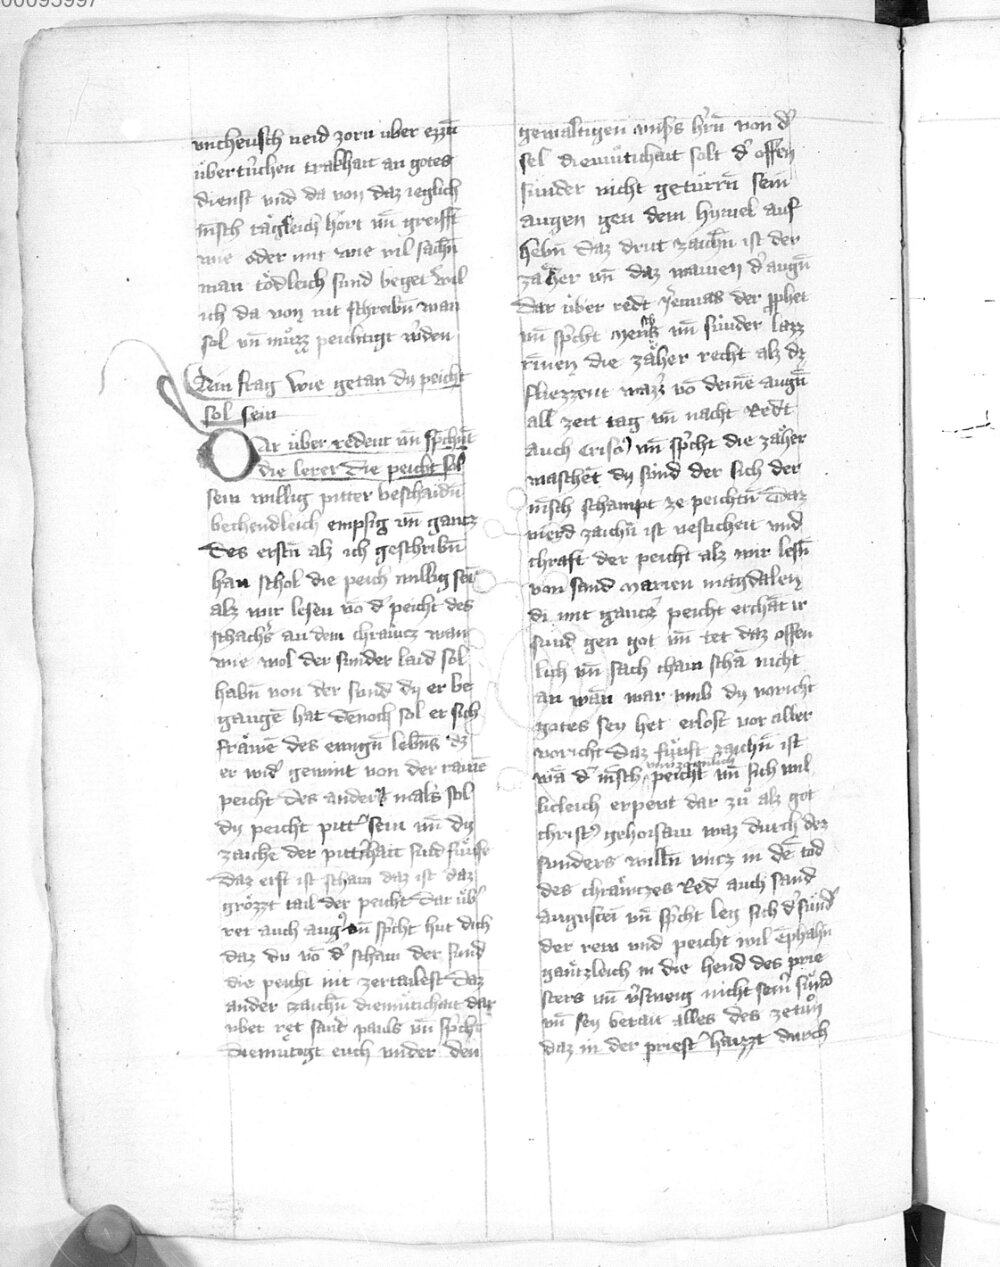 00095997
vncheusch neid zorn vber ezzñ
vbertrichen trakhait an gotes
dienst vnd da von daz ieglich
mẽsch tägleich hört vñ greifft
wie oder mit wie vil sachñ
man tödleich sund beget wil
ich da von nit schreibñ wan
sol vñ müzz peichtigt wˀden
Ain frag wie getan dy peicht
sol sein
Dar über redent vñ sprechñt
die lerer Die peicht sol
sein willig pitter beschaidñ
bechendleich empsig vñ gantz
Des erstñ alz ich geschribñ
han schol die peich willig sein
alz wir lesen võ dˀ peicht des
schachˀs an dem chräwcz wan
wie wol der sunder laid sol
habñ von der sund dy er be
gangẽ hat dẽnoch sol er sich
fräwẽ des ewigñ lebñs dz
er widˀ gewint von der rainẽ
peicht Des anders mals sol
dy peicht pittˀ sein vñ dy
zaichẽ der pittˀchait sind fünfe
Daz erst ist scham daz ist daz
grözzt tail der peicht Dar übˀ
ret auch augˀ vñ spˀcht hut dich
daz du võ dˀ scham der sund
die peicht nit zertailest Daz
ander zaichñ diemütichait dar
vber ret sand pauls vñ spˀcht
Diemütigt euch vnder den
gewaltigen vnsˀs hˀrñ von dˀ
sel diemütichait solt dˀ offen
sünder nicht getürrñ sein
augen gen dem hymel auf
hebñ Daz drit zaichñ ist der
zäher vñ daz wainen dˀ augñ
Dar über redt Jeremias der prphet
vñ spˀcht mensch vñ sünder lazz
rinnen die zäher recht alz dz
fliezzent wazzˀ võ deinẽ augñ
all zeit tag vñ nacht Redt
auch Crisoˀ vñ spˀcht die zäher
waschent dy sünd der sich der
mẽsch schampt ze peichtñ Daz
vierd zaichñ ist vesticheit vnd
chraft der peicht alz wir lesñ
von sand Marien magdalen
di mit gantz peicht erchant ir
sund gen got vñ tet daz offen
lich vñ sach cham schã nicht
an wãn war vmb dy voricht
gotes sey het erlost vor aller
voricht Daz fünft zaichñ ist
wã dˀ mẽsch peicht vñ sich wil
licleich erpewt dar zů alz got
christˀ gehorsam waz durch dez
sunders willñ vncz in dẽ tod
des chräwczes Red auch sand
augustein vñ spˀcht leg sich dˀ sündˀ
der rew vnd peicht wil ẽphahñ
gäntzleich in die hend des prie
sters vñ vˀsweig nicht seinˀ sünd
vñ sey berait alles des zetůn
daz in der priestˀ haizzt durch